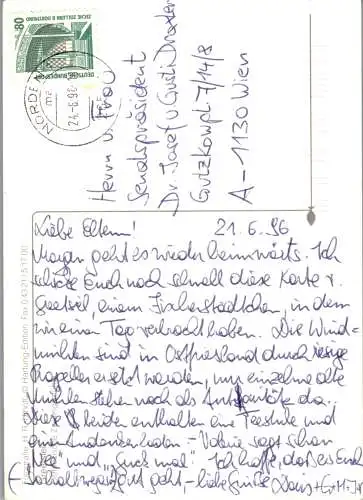 80
ZECHE ZOLLERN II DORTMUND
DEUTSCHE BUNDESPOST
NORDEN
24.-6.96
Herrn u. Frau
Senatspräsident
Dr. Josef u Gusti Draxler
Gutzkowpl. 7/14/8
A-1130 Wien
Liebe Eltern! 21.6.96
Morgen geht es wieder heimwärts. Ich
schicke Euch noch schnell diese Karte v.
Greetsiel, einem Fischerstädtchen, in dem
wir einen Tag verbracht haben. Die Wind-
mühlen sind in Ostfriesland durch riesige
Propeller ersetzt worden, nur einzelne alte
Mühlen stehen noch als Aufputz da..
Diese beiden enthalten eine Teestube und
einen Andenkenladen - sagt schon
und "Guck mal". Ich hoffe, daß es Euch
geht - liebe Grüße